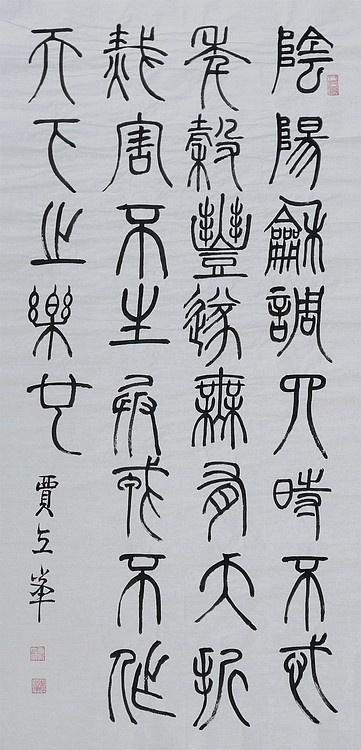 陰陽龢調四時不忒
年穀豐遂無有夭折
烖害不生兵戎不作
天下之樂也
賈立